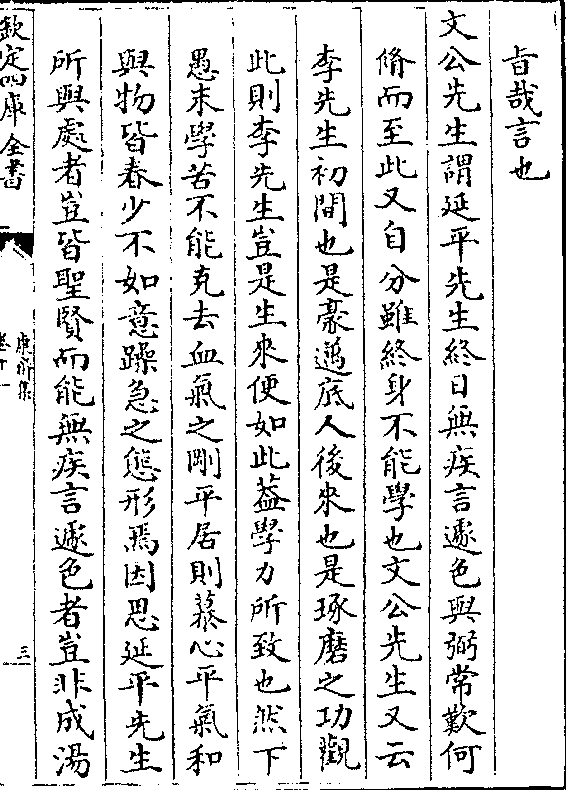 旨哉言也
文公先生謂延平先生終日無疾言遽色與弼常歎何
脩而至此又自分雖終身不能學也文公先生又云
李先生初間也是豪邁底人後來也是琢磨之功觀
此則李先生豈是生來便如此葢學力所致也然下
愚末學苦不能克去血氣之剛平居則慕心平氣和
與物皆春少不如意躁急之態形焉因思延平先生
所與處者豈皆聖賢而能無疾言遽色者豈非成湯
欽定四庫全書
康齋集
卷十一
三